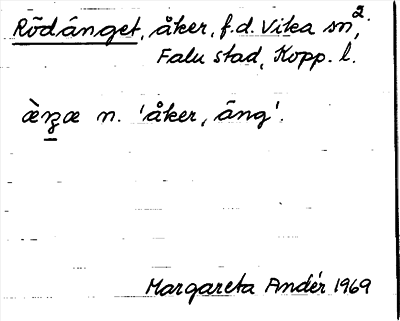 Rödänget, åker, f.d. Vika sn²,
Falu stad, Kopp. l.
n. 'åker, äng'.
Margareta Andér 1969